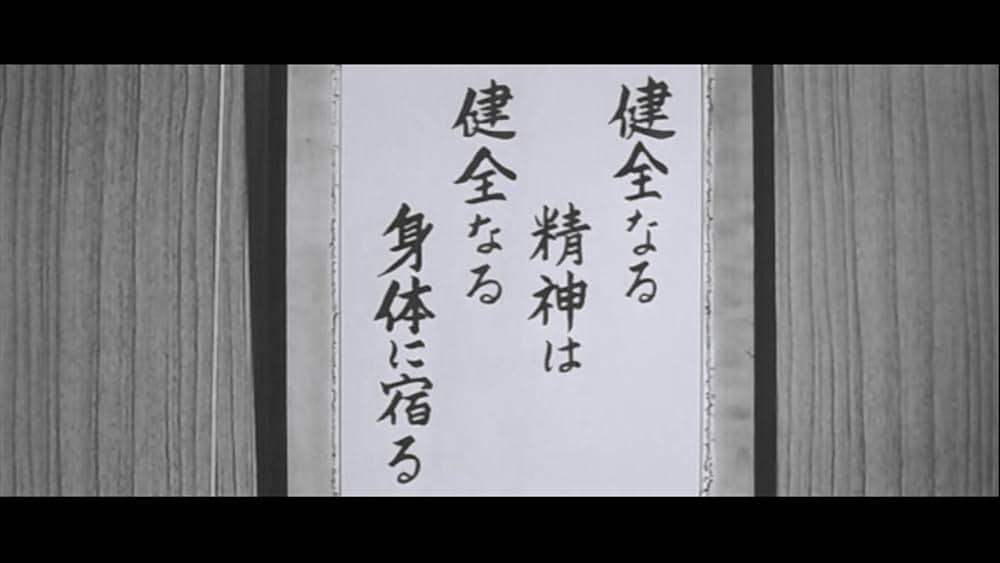 健全なる
精神は
健全なる
身体に宿る